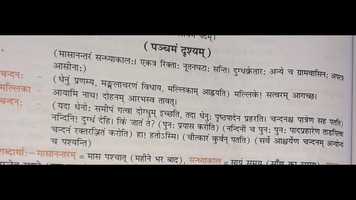 (पञ्चमं दृश्यम्)
(मासानन्तरं सन्ध्याकालः। एकत्र रिक्ताः नूतनघटाः सन्ति। दुग्धक्रेतारः अन्ये च ग्रामवासिनः अपरत्र
आसीनाः)
चन्दनः - (धेनुं प्रणम्य, मङ्गलाचरणं विधाय, मल्लिकाम् आह्वयति) मल्लिके! सत्वरम् आगच्छ।
मल्लिका - आयामि नाथ! दोहनम् आरभस्व तावत्।
चन्दनः - (यदा धेनोः समीपं गत्वा दोग्धुम् इच्छति, तदा धेनुः पृष्ठपादेन प्रहरति। चन्दनश्च पात्रेण सह पतति)
नन्दिनि! दुग्धं देहि। किं जातं ते? (पुनः प्रयासं करोति) (नन्दिनी च पुनः पुनः पादप्रहारेण ताडयित्वा
चन्दनं रक्तरञ्जितं करोति) हा! हतोऽस्मि। (चीत्कारं कुर्वन् पतति) (सर्वे आश्चर्येण चन्दनम् अन्योन्यं
च पश्यन्ति)
शब्दार्थाः- मासानन्तरम् = मास पश्चात् (महीने भर बाद), सन्ध्याकाल = सायं समय